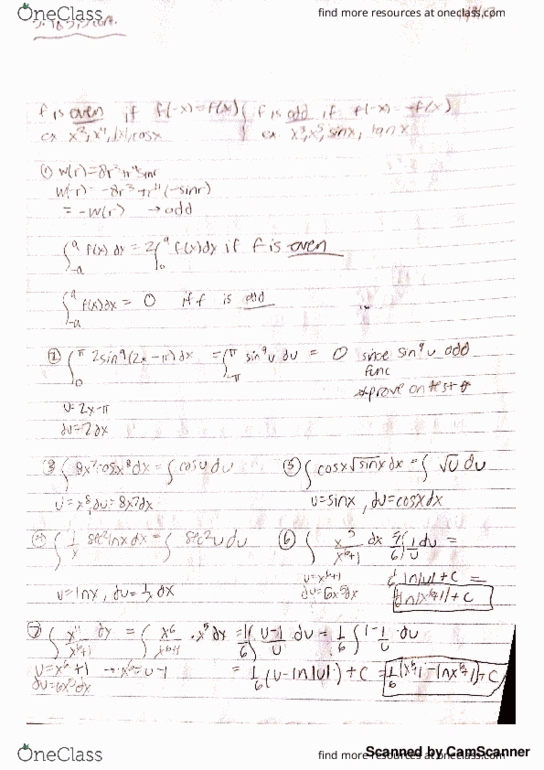 OneClass
find more resources at oneclass.com
f is even if f(-x) = f(x) { f is odd if f(-x) = -f(x)
ex x², x⁴, |x|, cosx { ex x³, x⁵, sinx, tanx
① w(r) = 8r³ + r⁴ sinr
w(-r) = -8r³ + r⁴(-sinr)
= -w(r) → odd
∫₋ₐᵃ f(x) dx = 2∫₀ᵃ f(x) dx if f is even
∫₋ₐᵃ f(x) dx = 0 if f is odd
② ∫₀^π 2sin⁹(2x-π) dx = ∫₋π^π sin⁹u du = 0 since sin⁹u odd
func
prove on test
u = 2x-π
du = 2dx
③ ∫ 8x⁷cosx⁸ dx = ∫ cosu du
u = x⁸, du = 8x⁷dx
⑤ ∫ cosx√sinx dx = ∫ √u du
u = sinx, du = cosxdx
④ ∫ 1/x sec²lnx dx = ∫ sec²u du
u = lnx, du = 1/x dx
⑥ ∫ x⁵/(x⁶+1) dx = 1/6 ∫ 1/u du =
u = x⁶+1
du = 6x⁵dx
1/6 ln|u| + C =
ln|x⁶+1| + C
⑦ ∫ x¹¹/(x⁶+1) dx = ∫ x⁶/(x⁶+1) · x⁵ dx = 1/6 ∫ (u-1)/u du = 1/6 ∫ 1 - 1/u du
u = x⁶+1 → x⁶ = u-1
du = 6x⁵dx
= 1/6 (u - ln|u|) + C = 1/6 (x⁶+1 - ln|x⁶+1|) + C
Scanned by CamScanner
OneClass
find more resources at oneclass.com